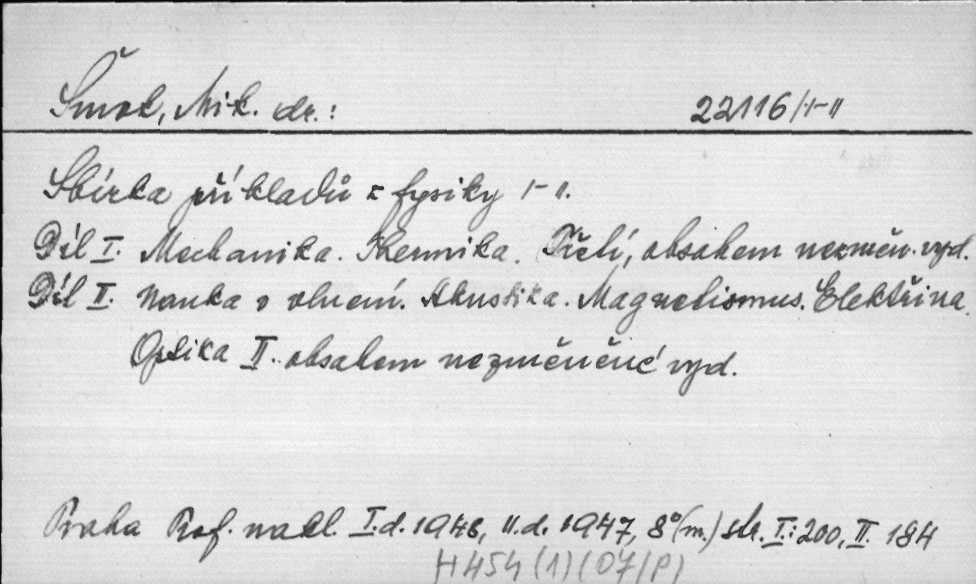 Šmok, Mik. dr.: 22116/I-II
Sbírka příkladů z fysiky I-II.
Díl I. Mechanika. Thermika. Třetí, obsahem nezměn. vyd.
Díl II. Nauka o vlnění. Akustika. Magnetismus. Elektřina.
Optika II. obsahem nezměněné vyd.
Praha Prof. nakl. I.d. 1948, II.d. 1947, 8°(m.) str. I.: 200, II. 184
H454(1)(07/P)